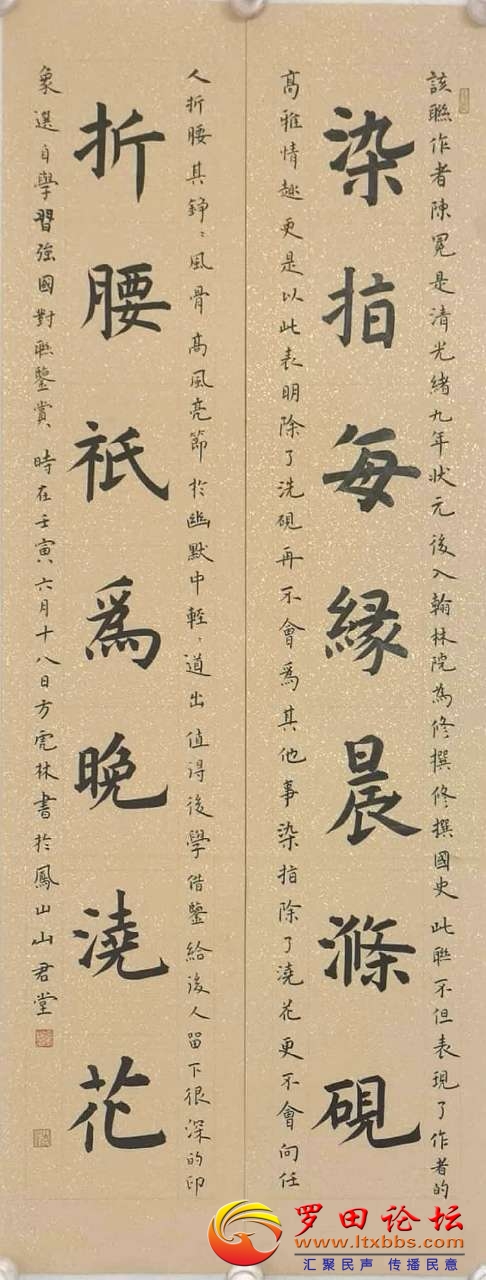 該聯作者陳冕是清光緒九年狀元後入翰林院為修撰修撰國史此聯不但表現了作者的
染指每緣晨滌硯
高雅情趣更是以此表明除了洗硯再不會爲其他事染指除了澆花更不會向任
人折腰其錚〻風骨高風亮節於幽默中輕〻道出值得後學借鑒給後人留下很深的印
折腰祇爲晚澆花
象選自學習強國對聯鑒賞時在壬寅六月十八日方虎林書於鳳山山君堂
罗田论坛
www.ltxbbs.com
汇聚民声 传播民意